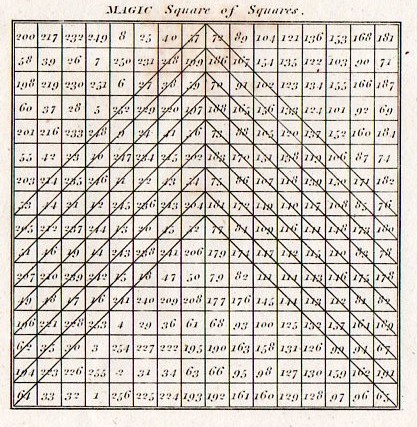 MAGIC Square of Squares.
200 217 232 249 8 25 40 57 72 89 104 121 136 153 168
58 39 26 7 250 231 218 199 186 167 154 135 122 103 90 71
198 219 230 251 6 27 38 59 70 91 123 134 155 166 187
60 37 28 5 252 229 220 197 188 165 156 133 124 101 92 69
201 216 233 248 9 24 41 56 73 88 105 120 137 152 184
55 42 23 10 247 234 215 202 183 170 151 138 119 106 87 74
203 214 235 246 11 22 43 54 75 86 107 118 139 150 171 182
53 44 21 12 245 236 213 204 181 172 149 140 117 108 85 76
205 212 237 244 13 20 45 52 77 84 109 116 141 148 173 180
51 46 19 14 243 238 206 179 174 142 110 83 78
207 210 239 242 15 18 47 50 79 82 111 114 143 146 175 178
49 48 17 16 241 240 209 208 177 176 145 144 113 112 81
196 221 228 253 4 29 36 61 68 93 100 125 132 157 164
62 35 30 3 254 227 222 195 190 163 158 131 126 99 94 67
194 223 226 255 2 31 34 63 66 95 98 127 130 159 162 191
64 33 32 1 256 225 224 193 192 161 160 129 128 97 96 65